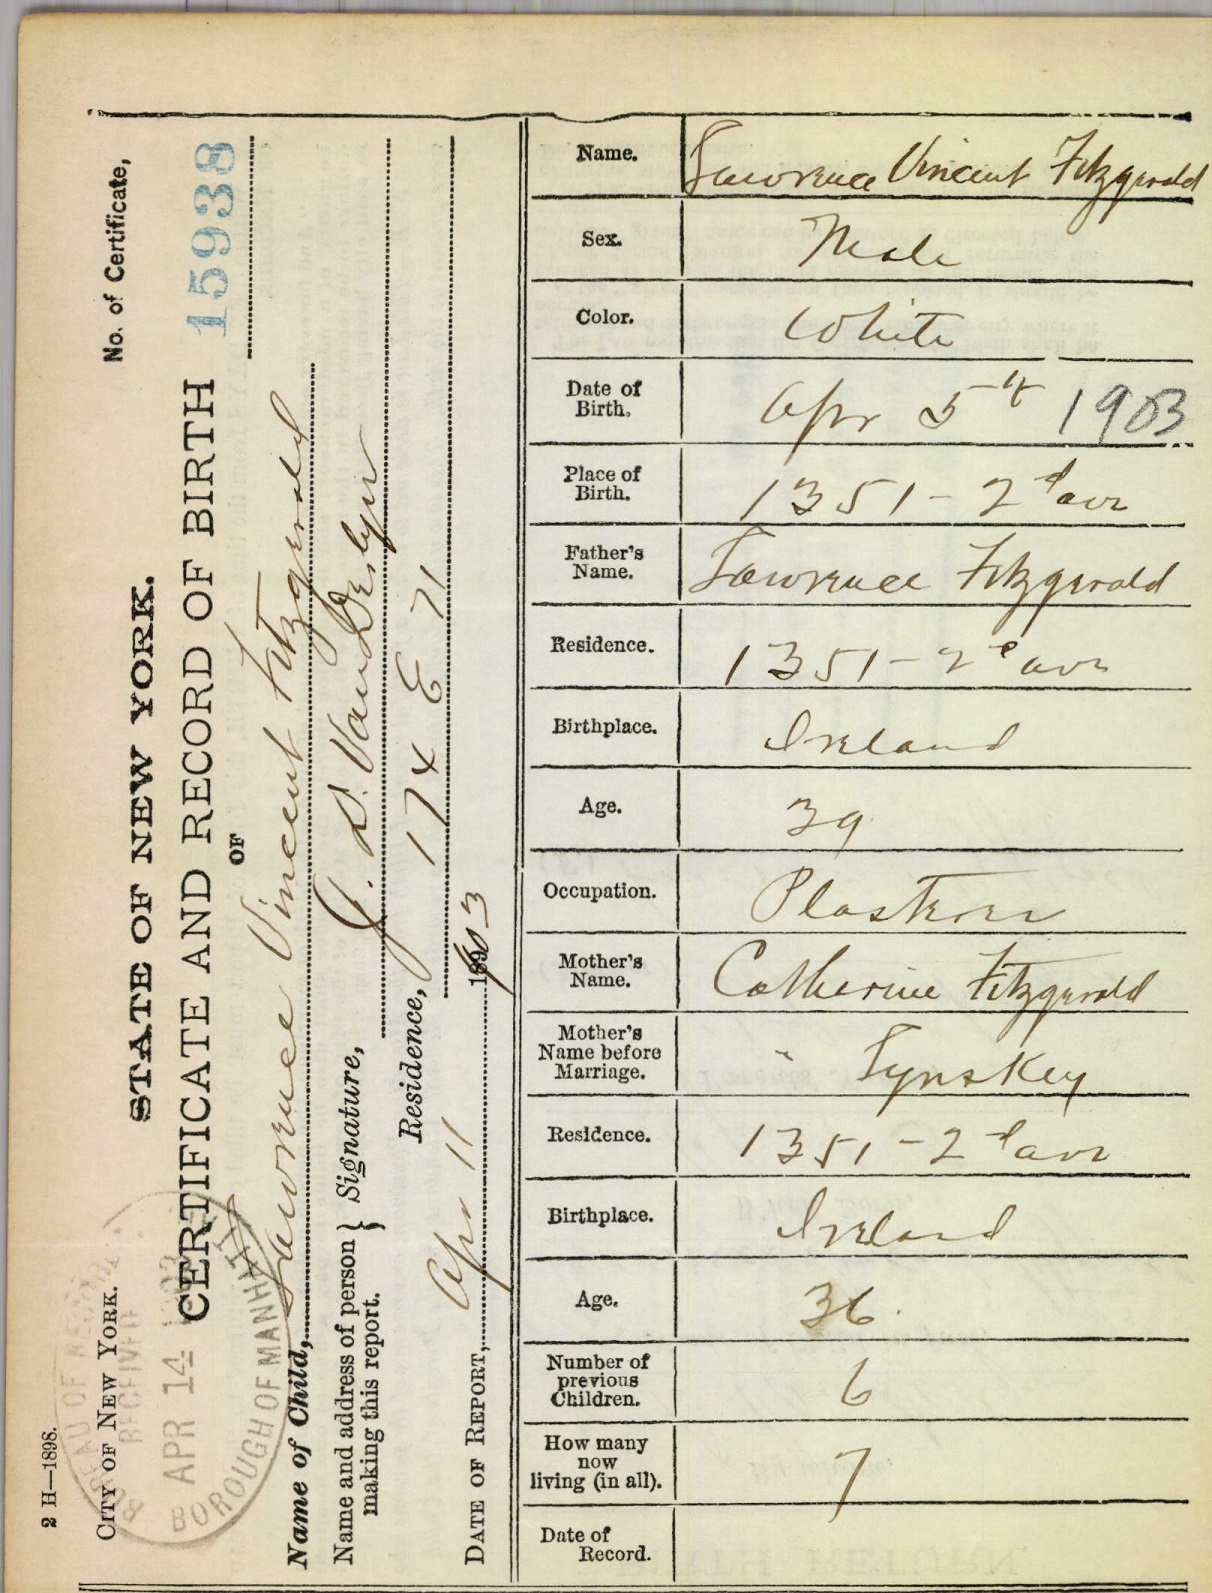 2 H—1898.
CITY OF NEW YORK.
No. of Certificate,
15938
STATE OF NEW YORK.
CERTIFICATE AND RECORD OF BIRTH
OF
Name of Child, Lawrence Vincent Fitzgerald
Name and address of person making this report. } Signature, J. D.
Residence, 174 E 71
DATE OF REPORT, Apr 11 1903
BUREAU OF RECORDS
RECEIVED
APR 14 1903
BOROUGH OF MANHATTAN
Name. Lawrence Vincent Fitzgerald
Sex. Male
Color. White
Date of Birth. Apr 5th 1903
Place of Birth. 1351 - 2d ave
Father's Name. Lawrence Fitzgerald
Residence. 1351 - 2d ave
Birthplace. Ireland
Age. 39
Occupation. Plasterer
Mother's Name. Catherine Fitzgerald
Mother's Name before Marriage. " Tynskey
Residence. 1351 - 2d ave
Birthplace. Ireland
Age. 36
Number of previous Children. 6
How many now living (in all). 7
Date of Record.